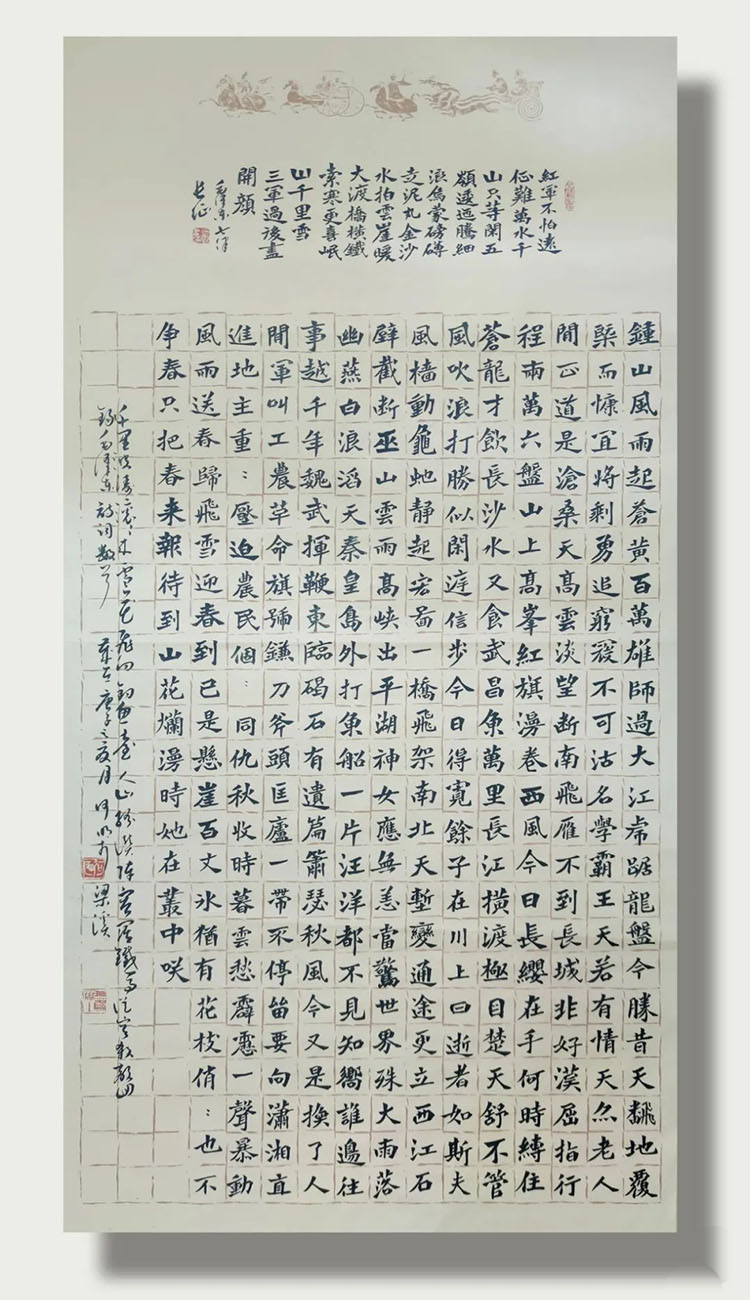 紅軍不怕遠
征難萬水千
山只等閑五
嶺逶迤騰細
浪烏蒙磅礴
走泥丸金沙
水拍雲崖暖
大渡橋橫鐵
索寒更喜岷
山千里雪
三軍過後盡
開顏
毛澤東七律
長征
鍾山風雨起蒼黃百萬雄師過大江虎踞龍盤今勝昔天翻地覆
槩而慷宜將剩勇追窮寇不可沽名學霸王天若有情天亦老人
間正道是滄桑天高雲淡望斷南飛雁不到長城非好漢屈指行
程兩萬六盤山上高峯紅旗漫卷西風今日長纓在手何時縛住
蒼龍才飲長沙水又食武昌魚萬里長江橫渡極目楚天舒不管
風吹浪打勝似閑庭信步今日得寬餘子在川上曰逝者如斯夫
風檣動龜蛇靜起宏圖一橋飛架南北天塹變通途更立西江石
壁截斷巫山雲雨高峽出平湖神女應無恙當驚世界殊大雨落
幽燕白浪滔天秦皇島外打魚船一片汪洋都不見知嚮誰邊往
事越千年魏武揮鞭東臨碣石有遺篇蕭瑟秋風今又是換了人
間軍叫工農革命旗號鐮刀斧頭匡廬一帶不停留要向瀟湘直
進地主重:壓迫農民個:同仇秋收時暮雲愁霹靂一聲暴動
風雨送春歸飛雪迎春到已是懸崖百丈冰猶有花枝俏:也不
争春只把春来報待到山花爛漫時她在叢中咲
千里
錄毛澤東詩詞數首 歲在庚子之夏月 梁溪